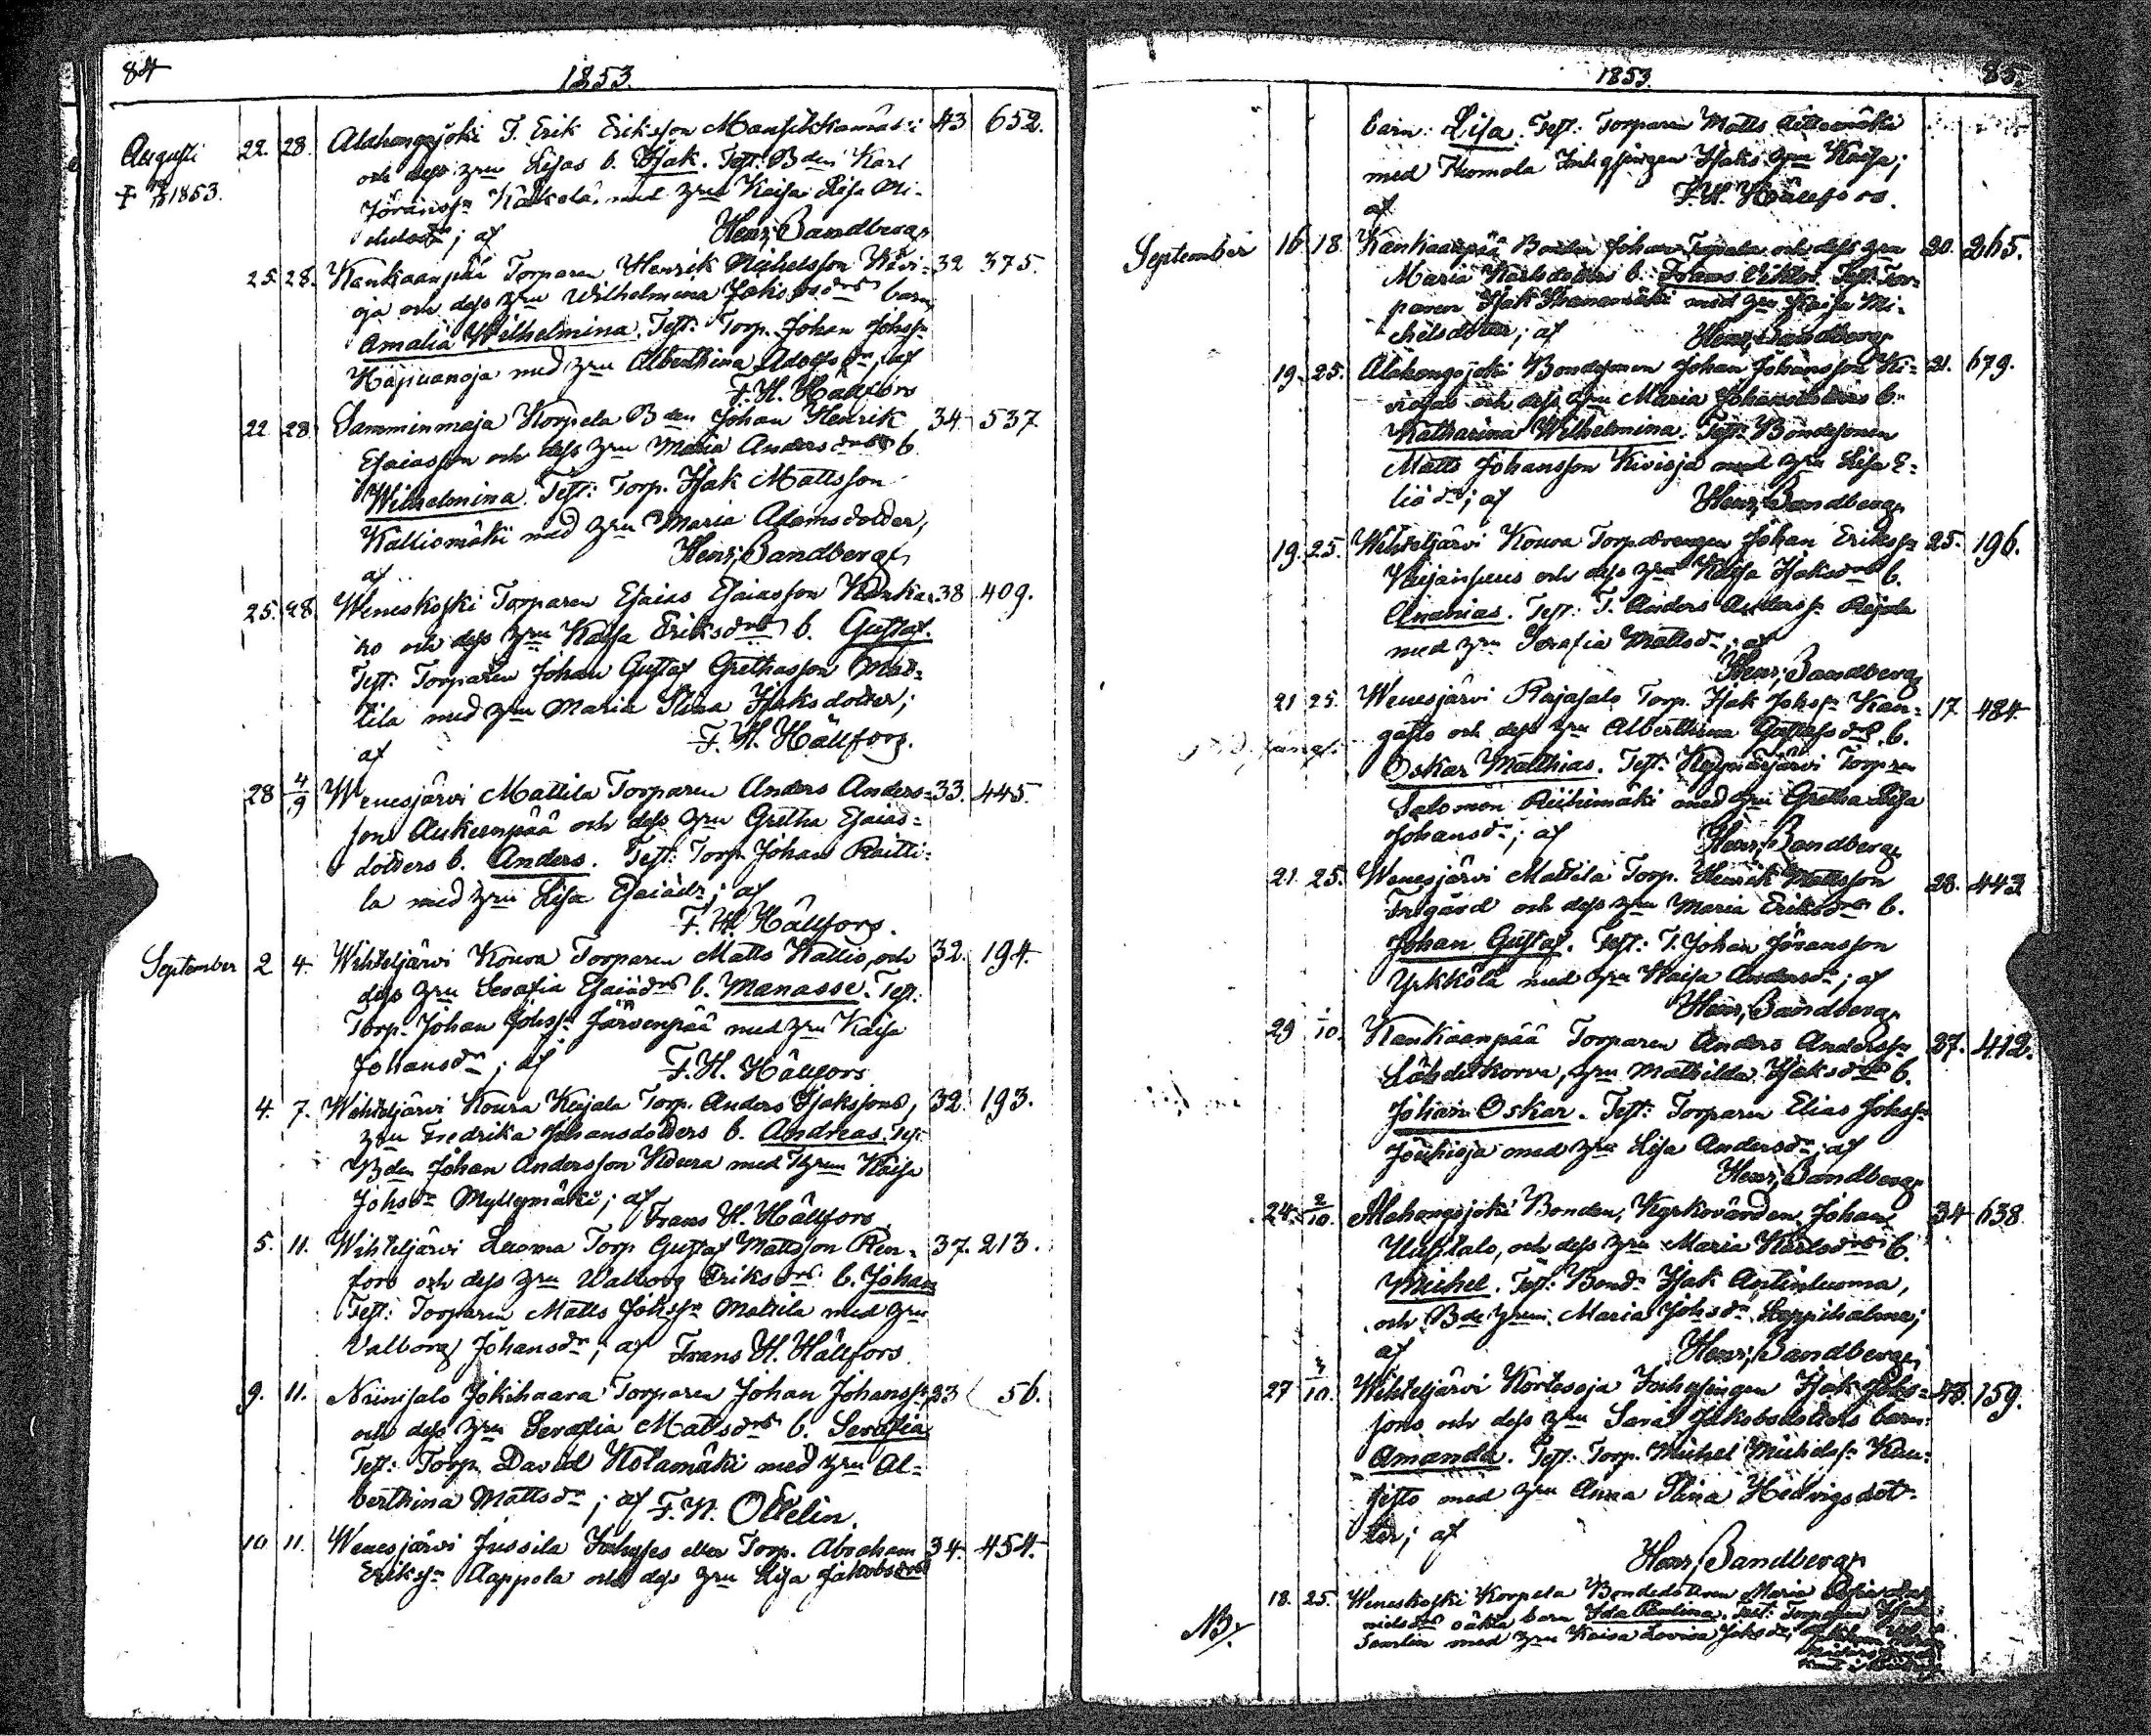 84
1853.
Augusti 22. 28. Alahongojoki T. Erik Eriksson Mansikkamäki 43 652.
† 1853. och dess hru Lisas b. Isak. Test: Bden Karl
Jöransson med hru Kaisa Lisa Mi-
chelsdr; af Henr; Sandberg
25. 28. Kankaanpää Torparen Henrik Michelsson Kivi- 32 375.
oja och dess hru Wilhelmina barn
Amalia Wilhelmina. Test: Torp. Johan Johss
Hapuanoja med hru Alberthina Adolfsdr, af
F. H. Hällfors
22 28 Samminmaja Korpela Bden Johan Henrik 34 537
Esaiasson och dess hru Maria Andersdrs b.
Wilhelmina. Test: Torp. Isak Mattsson
Kalliomäki med hru Maria Adamsdotter,
af Henr; Sandberg
25. 28. Weneskoski Torparen Esaias Esaiasson 38 409.
och dess hru Kaisa Eriksdrs b. Gustaf.
Test: Torparen Johan Gustaf Grethasson Mat-
tila med hru Maria Stina Isaksdotter;
af F. H. Hällfors.
28 4/9 Wenesjärvi Mattila Torparen Anders Anders- 33. 445.
sons Aukeenpää och dess hru Gretha Esaias-
dotters b. Anders. Test: Torp. Johan Raitti-
la med hru Lisa Esaiædr; af
F. H. Hällfors.
September 2 4. Wihteljärvi Koura Torparen Matts Kallio, och 32. 194.
dess hru Serafia Esaiædrs b. Manasse. Test:
Torp. Johan Johss Järvenpää med hru Kaisa
Johansdr; af F. H. Hällfors
4. 7. Wihteljärvi Koura Keijala Torp. Anders Isakssons, 32. 193.
hru Fredrika Johansdotters b. Andreas. Test:
Bden Johan Andersson Koura med Hrun Kaisa
Johsdr Myllymäki; af Frans H. Hällfors
5. 11. Wihteljärvi Luoma Torp Gustaf Mattsson Ren- 37. 213.
fors och dess hru Walborg Eriksdrs b. Johan
Test: Torparen Matts Johss Mattila med hru
Valborg Johansdr; af Frans H. Hällfors.
9. 11. Niinisalo Jokihaara Torparen Johan Johanss 23 56.
och dess hru Serafia Mattsdrs b. Serafia
Test: Torp. David Kotamäki med hru Al-
berthina Mattsdr; af F. W. Ottelin.
10 11. Wenesjärvi Jussila Inhyses eller Torp. Abraham 34. 454.
Erikss Aappola och dess hru Lisa Jakobsdrs
1853. 85.
barn: Lisa. Test: Torparen Matts
med Inhysingen Isaks hru Kaisa;
af F. H. Hällfors.
September 16 18. Kankaanpää Bonden Johan och dess hru 20. 265.
Maria Karlsdotters b. Frans Viktor. Test: Tor-
paren Isak med hru Kaisa Mi-
chelsdotter; af Henr; Sandberg
19. 25. Alahongojoki Bondesonen Johan Johansson Ki- 21. 679.
viojas och dess hru Maria Johansdotters b.
Katharina Wilhelmina. Test: Bondesonen
Matts Johansson Kivioja med hru Lisa E-
liædr; af Henr; Sandberg
19. 25. Wihteljärvi Koura Torpdrengen Johan Erikss 25. 196.
och dess hru Kaisa Isaksdrs b.
Ananias. Test: T. Anders Anderss Keijala
med hru Serafia Mattsdr; af
Henr; Sandberg
21 25. Wenesjärvi Rajasalo Torp. Isak Johss Kan- 17 484.
gasto och dess hru Alberthina Gustafsdrs b.
Oskar Matthias. Test: Torpren
Salomon Riihimäki med hru Gretha Lisa
Johansdr; af Henr; Sandberg
21. 25. Wenesjärvi Mattila Torp. Henrik Mattsson 28. 443
och dess hru Maria Eriksdrs b.
Johan Gustaf. Test: T. Johan Jöransson
Yrkkölä med hru Kaisa Andersdr; af
Henr; Sandberg
29 1/10. Kankaanpää Torparen Anders Anderss 27. 412.
Lähdekorva, hru Mathilda Isaksdrs b.
Johan Oskar. Test: Torparen Elias Johss
med hru Lisa Andersdr; af
Henr; Sandberg
24. 2/10. Alahongojoki Bonden, Kyrkovärden Johan 34 638.
Uusitalo, och dess hru Maria Karlsdrs b.
Michel. Test: Bond. Isak Antinluoma,
och Bde hrun Maria Johsdr Leppihalme;
af Henr; Sandberg
27 2/10. Wihteljärvi Kortesoja Inhysingen Isak Johs- 159.
sons och dess hru Sara Jakobsdotters barn:
Amanda. Test: Torp. Michel Michelss Kan-
gisto med hru Anna Stina Hedvigsdot-
ter; af
Henr; Sandberg
NB; 18. 25. Weneskoski Korpela Bondedottren Maria
oäkta barn Ida Paulina. Test: Torparen
med hru Kaisa Lovisa